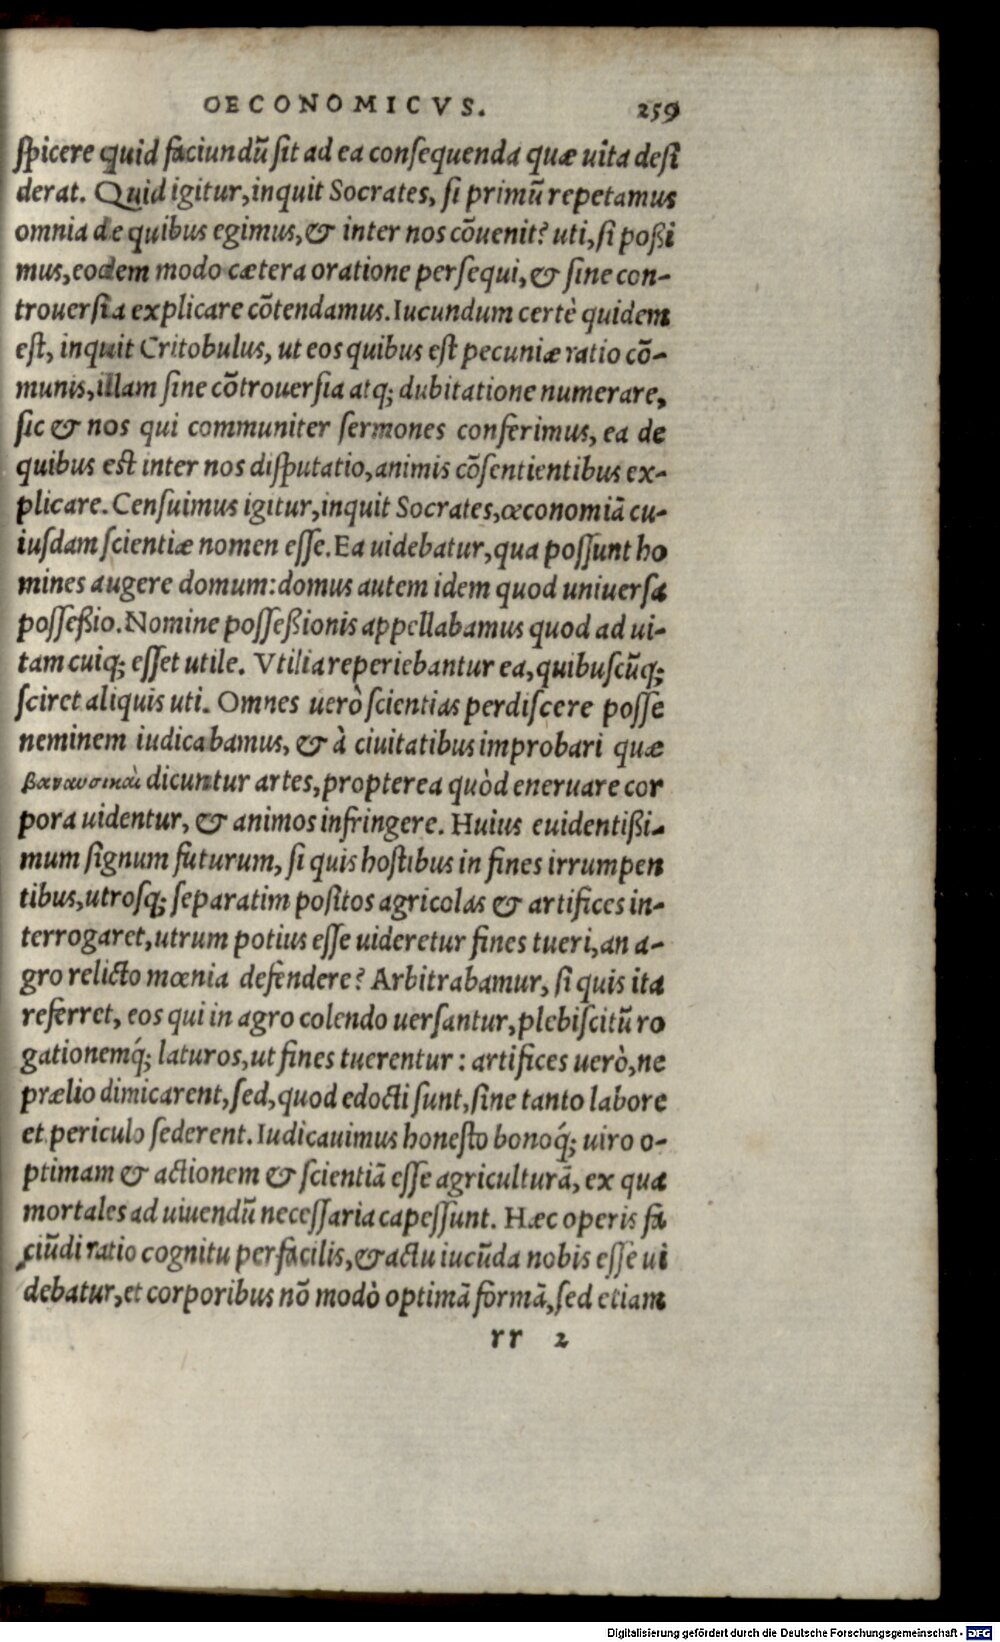 OECONOMICVS. 259
spicere quid faciundũ sit ad ea consequenda quæ uita desi
derat. Quid igitur, inquit Socrates, si primũ repetamus
omnia de quibus egimus, & inter nos cõuenit? uti, si poßi
mus, eodem modo cætera oratione persequi, & sine con-
trouersia explicare cõtendamus. Iucundum certè quidem
est, inquit Critobulus, ut eos quibus est pecuniæ ratio cõ-
munis, illam sine cõtrouersia atq; dubitatione numerare,
sic & nos qui communiter sermones conferimus, ea de
quibus est inter nos disputatio, animis cõsentientibus ex-
plicare. Censuimus igitur, inquit Socrates, œconomiã cu-
iusdam scientiæ nomen esse. Ea uidebatur, qua possunt ho
mines augere domum: domus autem idem quod uniuersa
posseßio. Nomine posseßionis appellabamus quod ad ui-
tam cuiq; esset utile. Vtilia reperiebantur ea, quibuscũq;
sciret aliquis uti. Omnes uerò scientias perdiscere posse
neminem iudicabamus, & à ciuitatibus improbari quæ
βαναυσικαὶ dicuntur artes, propterea quòd eneruare cor
pora uidentur, & animos infringere. Huius euidentißi-
mum signum futurum, si quis hostibus in fines irrumpen
tibus, utrosq; separatim positos agricolas & artifices in-
terrogaret, utrum potius esse uideretur fines tueri, an a-
gro relicto mœnia defendere? Arbitrabamur, si quis ita
referret, eos qui in agro colendo uersantur, plebiscitũ ro
gationemq́; laturos, ut fines tuerentur: artifices uerò, ne
prælio dimicarent, sed, quod edocti sunt, sine tanto labore
et periculo sederent. Iudicauimus honesto bonoq́; uiro o-
ptimam & actionem & scientiã esse agriculturã, ex qua
mortales ad uiuendũ necessaria capessunt. Hæc operis fa
ciũdi ratio cognitu perfacilis, & actu iucũda nobis esse ui
debatur, et corporibus nõ modò optimã formã, sed etiam
rr 2
Digitalisierung gefördert durch die Deutsche Forschungsgemeinschaft - DFG